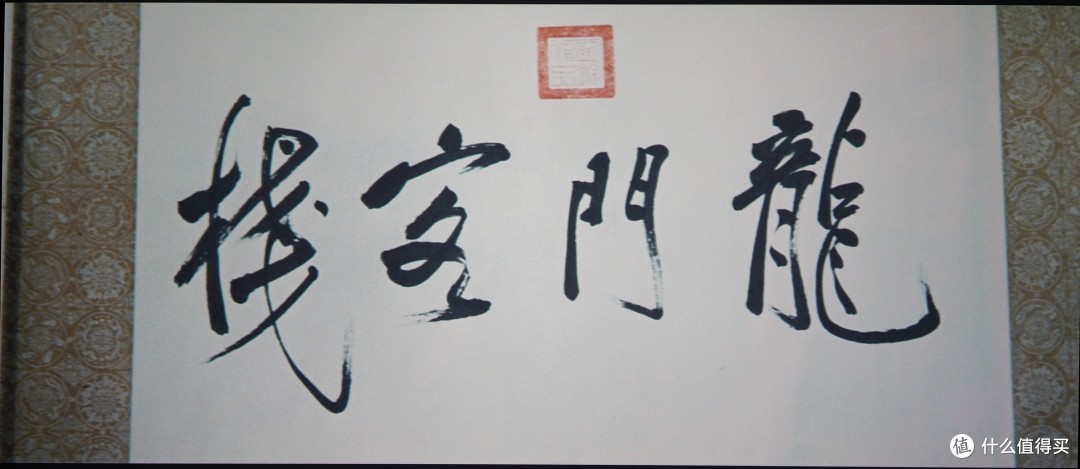 龍門客棧
值 什么值得买